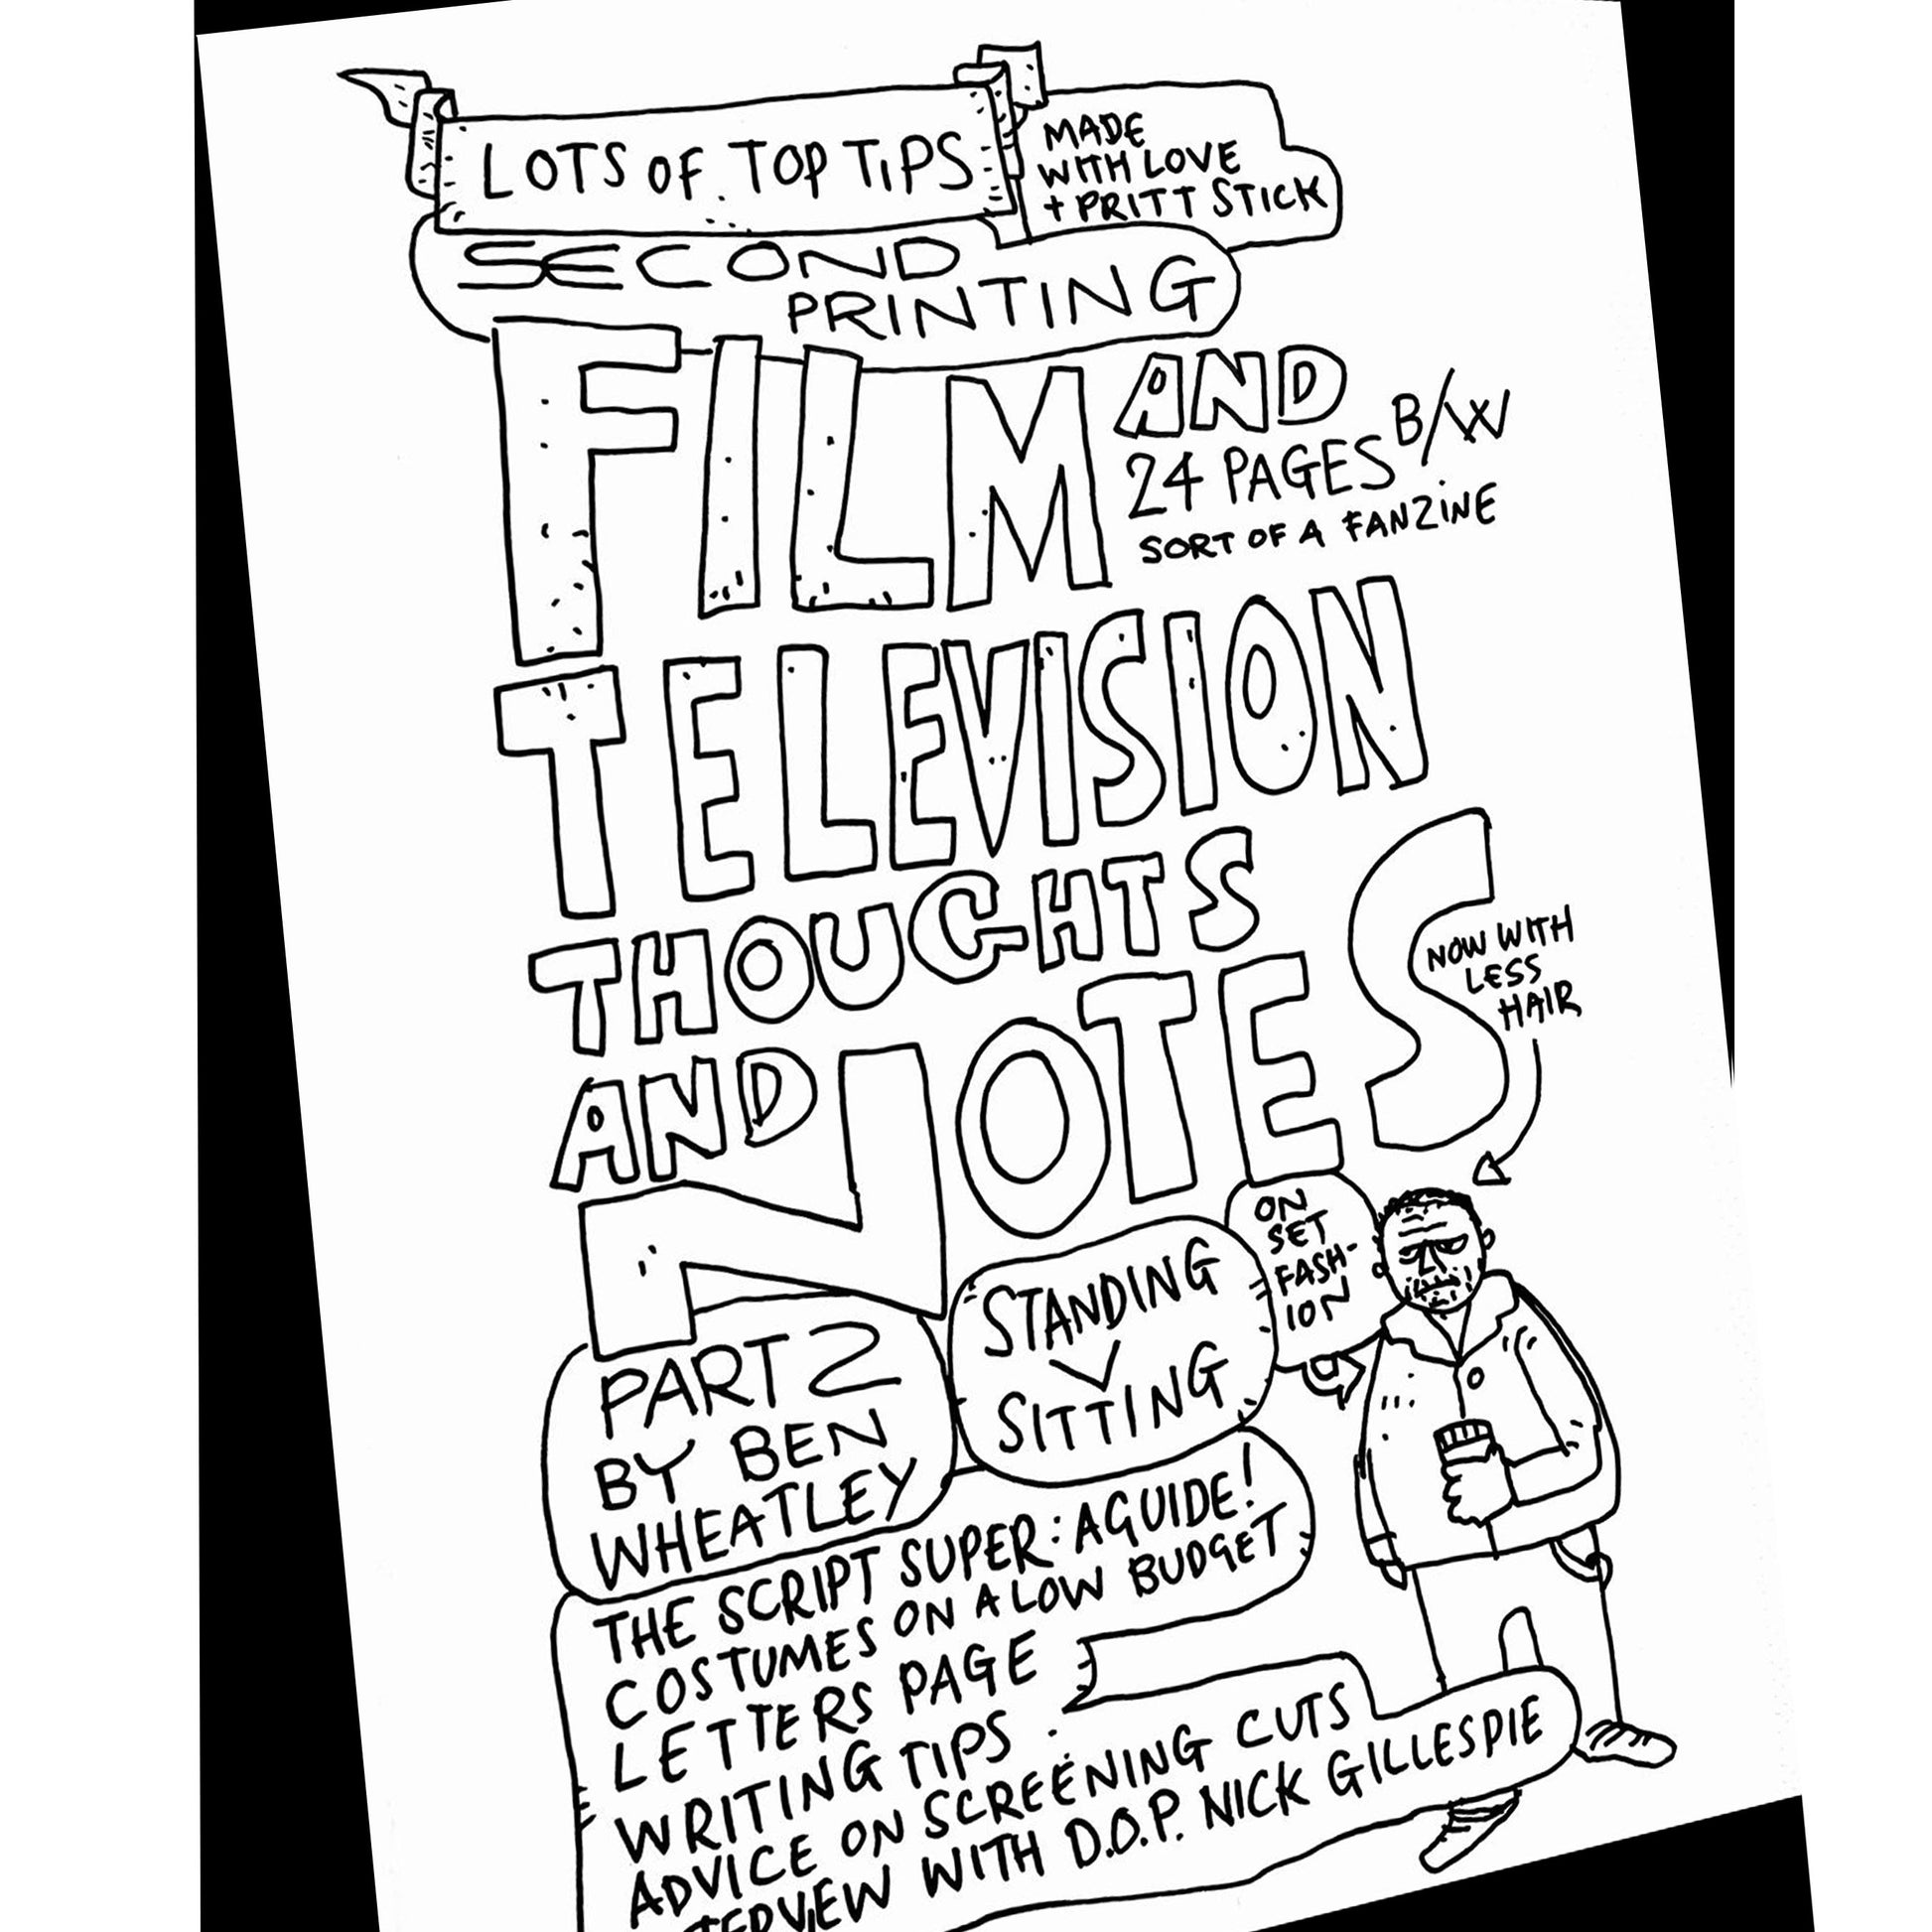 LOTS OF TOP TIPS
MADE
WITH LOVE
+ PRITT STICK
SECOND
PRINTING
FILM AND
24 PAGES B/W
SORT OF A FANZINE
TELEVISION
THOUGHTS
AND NOTES
NOW WITH
LESS
HAIR
ON
SET
FASH-
ION
STANDING
V
SITTING
PART 2
BY BEN
WHEATLEY
THE SCRIPT SUPER: A GUIDE!
COSTUMES ON A LOW BUDGET
LETTERS PAGE
WRITING TIPS
ADVICE ON SCREENING CUTS
WITH D.O.P. NICK GILLESPIE